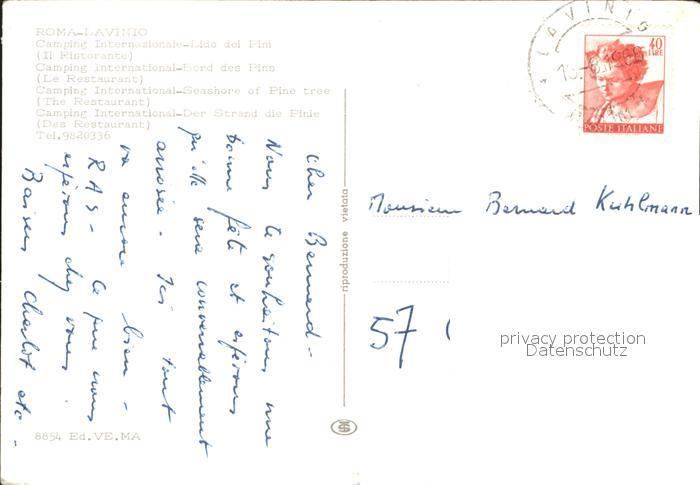 ROMA-LAVINIO
Camping Internazionale-Lido dei Pini
(Il Ristorante)
Camping International-Bord des Pins
(Le Restaurant)
Camping International-Seashore of Pine tree
(The Restaurant)
Camping International-Der Strand die Pinie
(Das Restaurant)
Tel.9820336
Cher Bernard-
Nous te souhaitons une
bonne fête et espérons
qu'elle sera convenablement
arrosée - Ici tout
va encore bien -
RAS - Ce que nous
espérons chez vous.
Baisers Charlot
8854 Ed.VE.MA
riproduzione vietata
LAVINIO
40
LIRE
POSTE ITALIANE
Monsieur Bernard Kuhlmann
57
privacy protection
Datenschutz